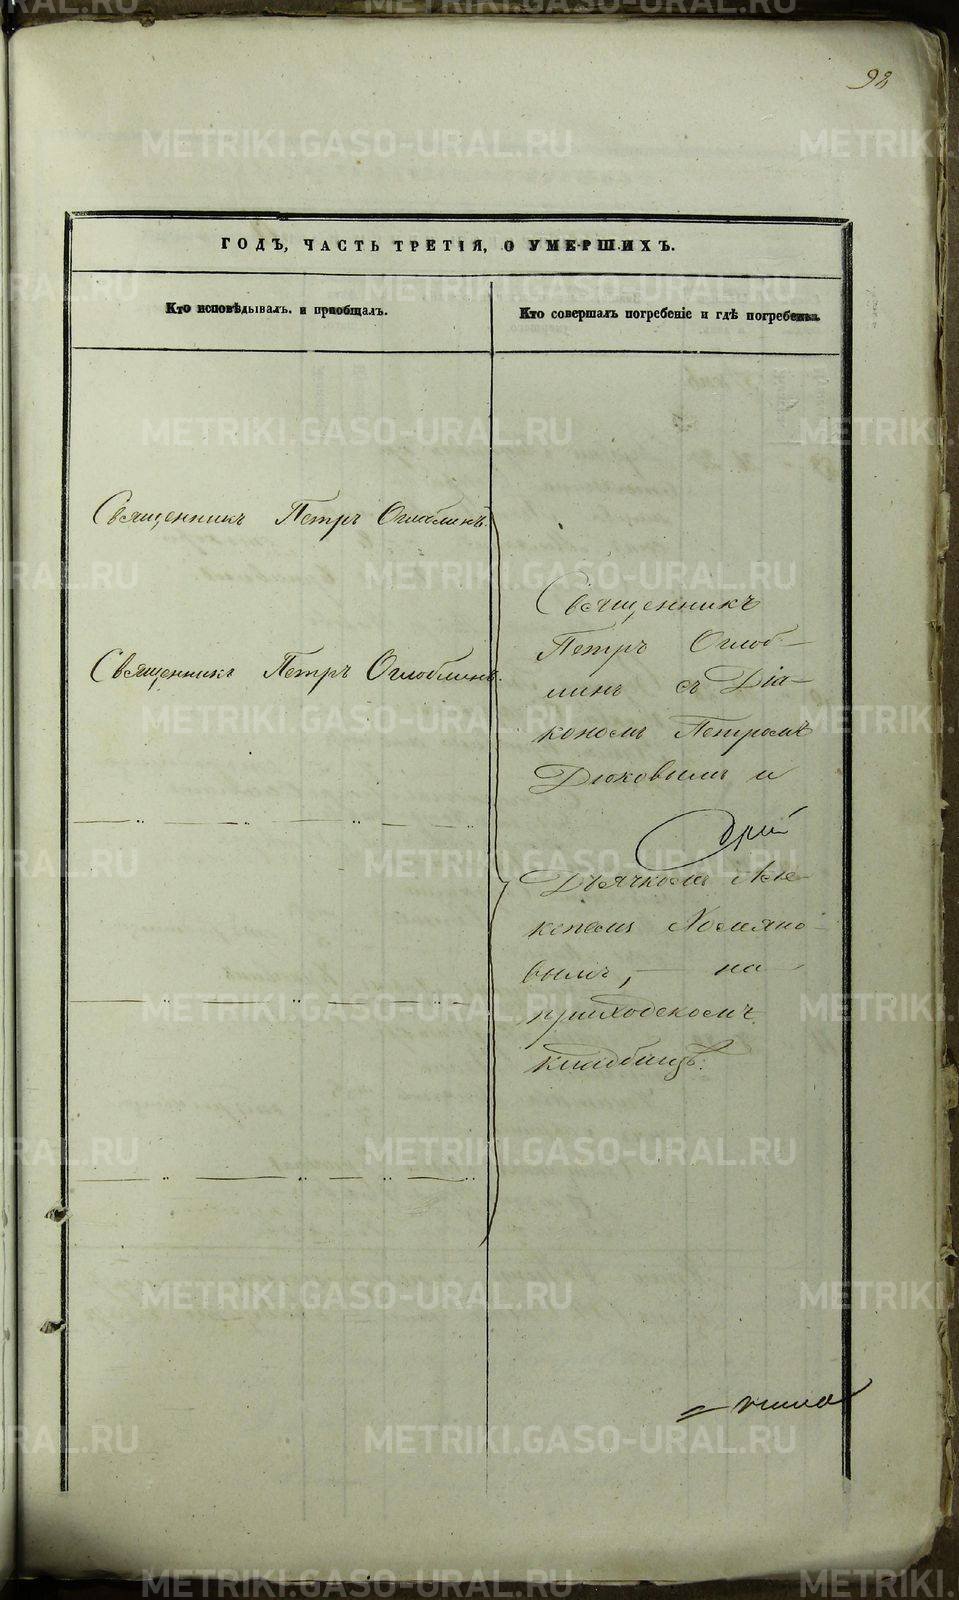 98
ГОДЪ, ЧАСТЬ ТРЕТІЯ, О УМЕРШИХЪ.
Кто исповѣдывалъ и пріобщалъ.
Кто совершалъ погребеніе и гдѣ погребены.
Священникъ Петръ Оглоблинъ.
Священникъ Петръ Оглоблинъ.
Священникъ
Петръ Оглоб-
линъ съ Діа-
кономъ Петромъ
Дюковымъ и
Дьячкомъ
вымъ, — на
приходскомъ
кладбищѣ.
METRIKI.GASO-URAL.RU